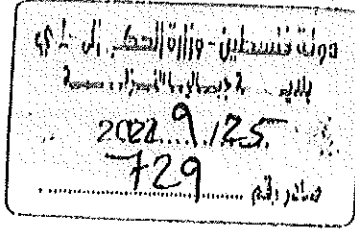 دولة فلسطين - وزارة الحكم المحلي
بلدية
2022 9/25
صادر رقم 729